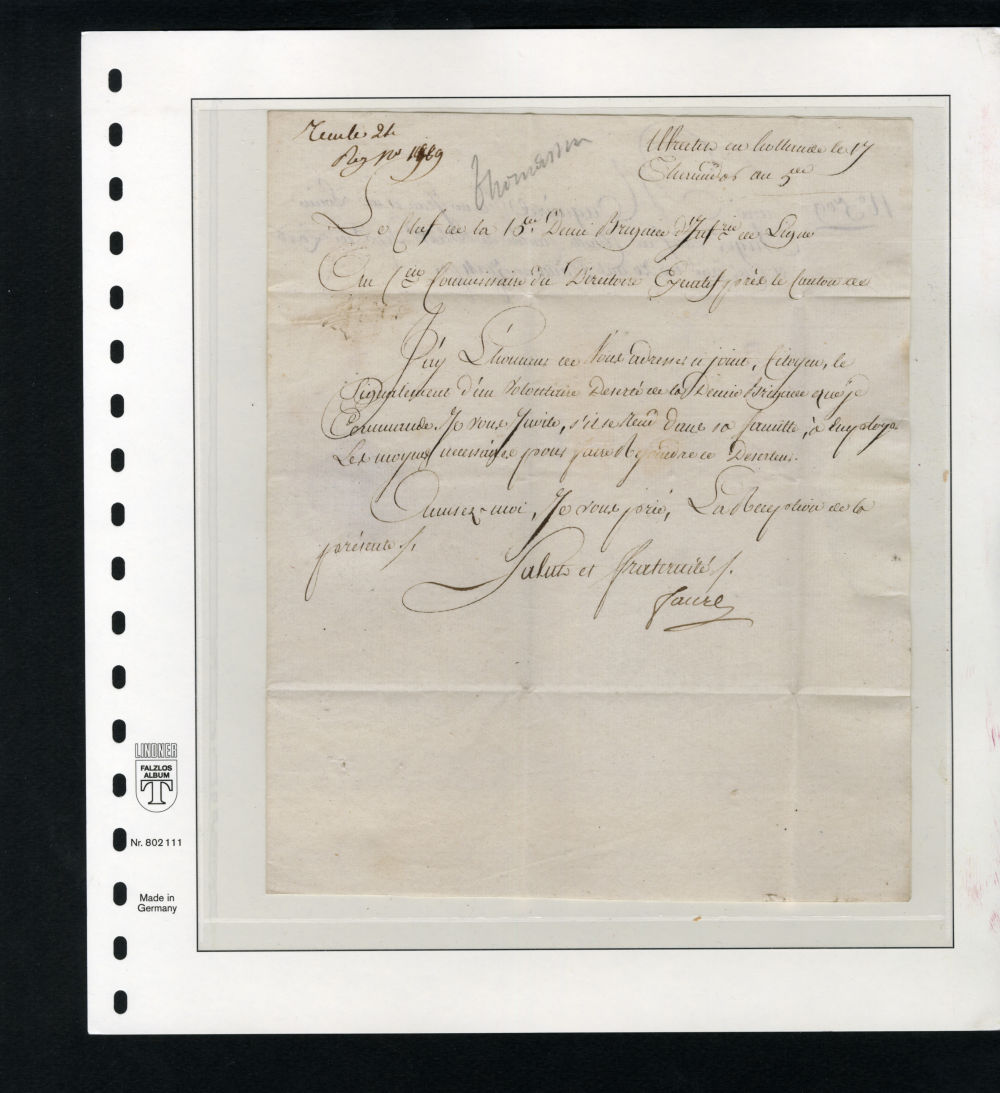 Reg. No 1969
Thomassen
Utrecht en hollande le 17
Thermidor an 5me
Le Chef de la 13me Demi Brigade d'Infrie de Ligne
Au Cen Commissaire du Directoire Exécutif près le Canton de
J'ai L'honneur de Vous adresser ci joint, Citoyen, le
Signalement d'un Volontaire Deserté de la Demi Brigade que je
Commande. Je vous Invite, s'il se dans sa famille, à Employer
Les moyens necessaires pour faire Rejoindre ce Deserteur.
Accusez-moi, Je vous prie, La Reception de la
présente /.
Salut et fraternité /.
Faure
LINDNER
FALZLOS
ALBUM
T
Nr. 802 111
Made in
Germany